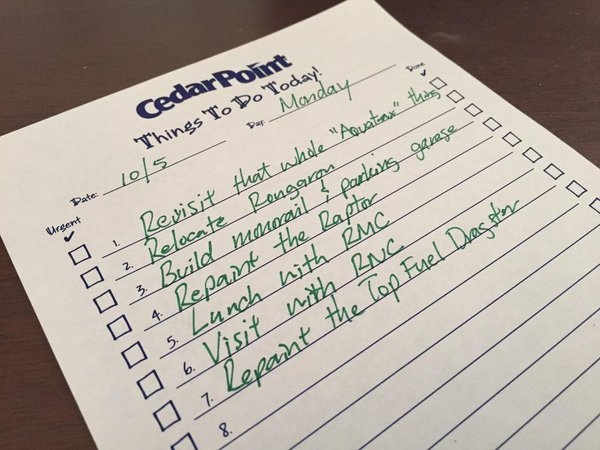 CedarPoint
Things To Do Today!
Date: 10/5 Day: Monday
Urgent Done
✓ ✓
1. Revisit that whole "Aquatrax" thing
2. Relocate Rougarou
3. Build monorail & parking garage
4. Repaint the Raptor
5. Lunch with RMC
6. Visit with RNC
7. Repaint the Top Fuel Dragster
8.